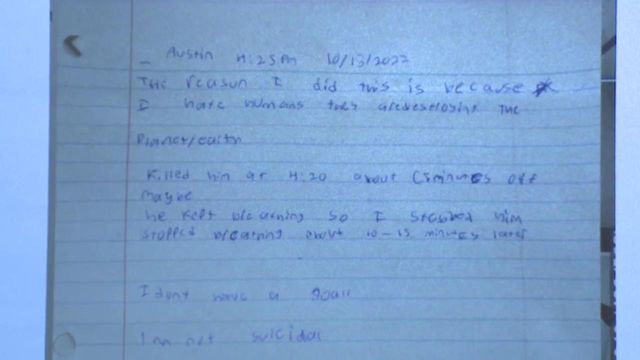 Austin 4:25 Pm 10/13/2022
The reason I did this is because
I hate humans they are destroying the
Planet/earth
Killed him at 4:20 about (5 minutes off
maybe
he kept breathing so I stabbed him
stopped breathing about 10-15 minutes later
I dont have a goal
I am not suicidal